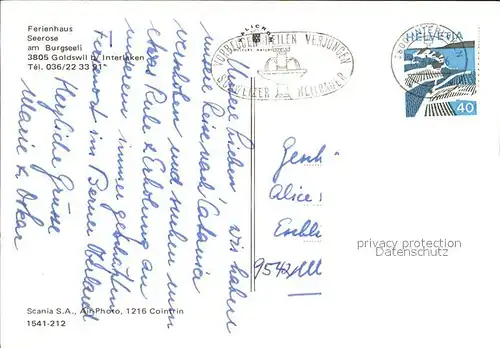 Ferienhaus
Seerose
am Burgseeli
3805 Goldswil b. Interlaken
Tel. 036/22 33 21
VORBEUGEN HEILEN VERJÜNGEN
SCHWEIZER HEILBÄDER
HELVETIA
40
Meine Lieben, wir haben
unsere Reise nach Catania
verschoben und suchen nun
etwas Ruhe & Erholung an
unserem immer geschätzten
Ferienort im Berner Oberland
Herzliche Grüsse
Marie & Oskar
Gesch
Alice
Eschli
9542 M
privacy protection
Datenschutz
Scania S.A., Air-Photo, 1216 Cointrin
1541-212